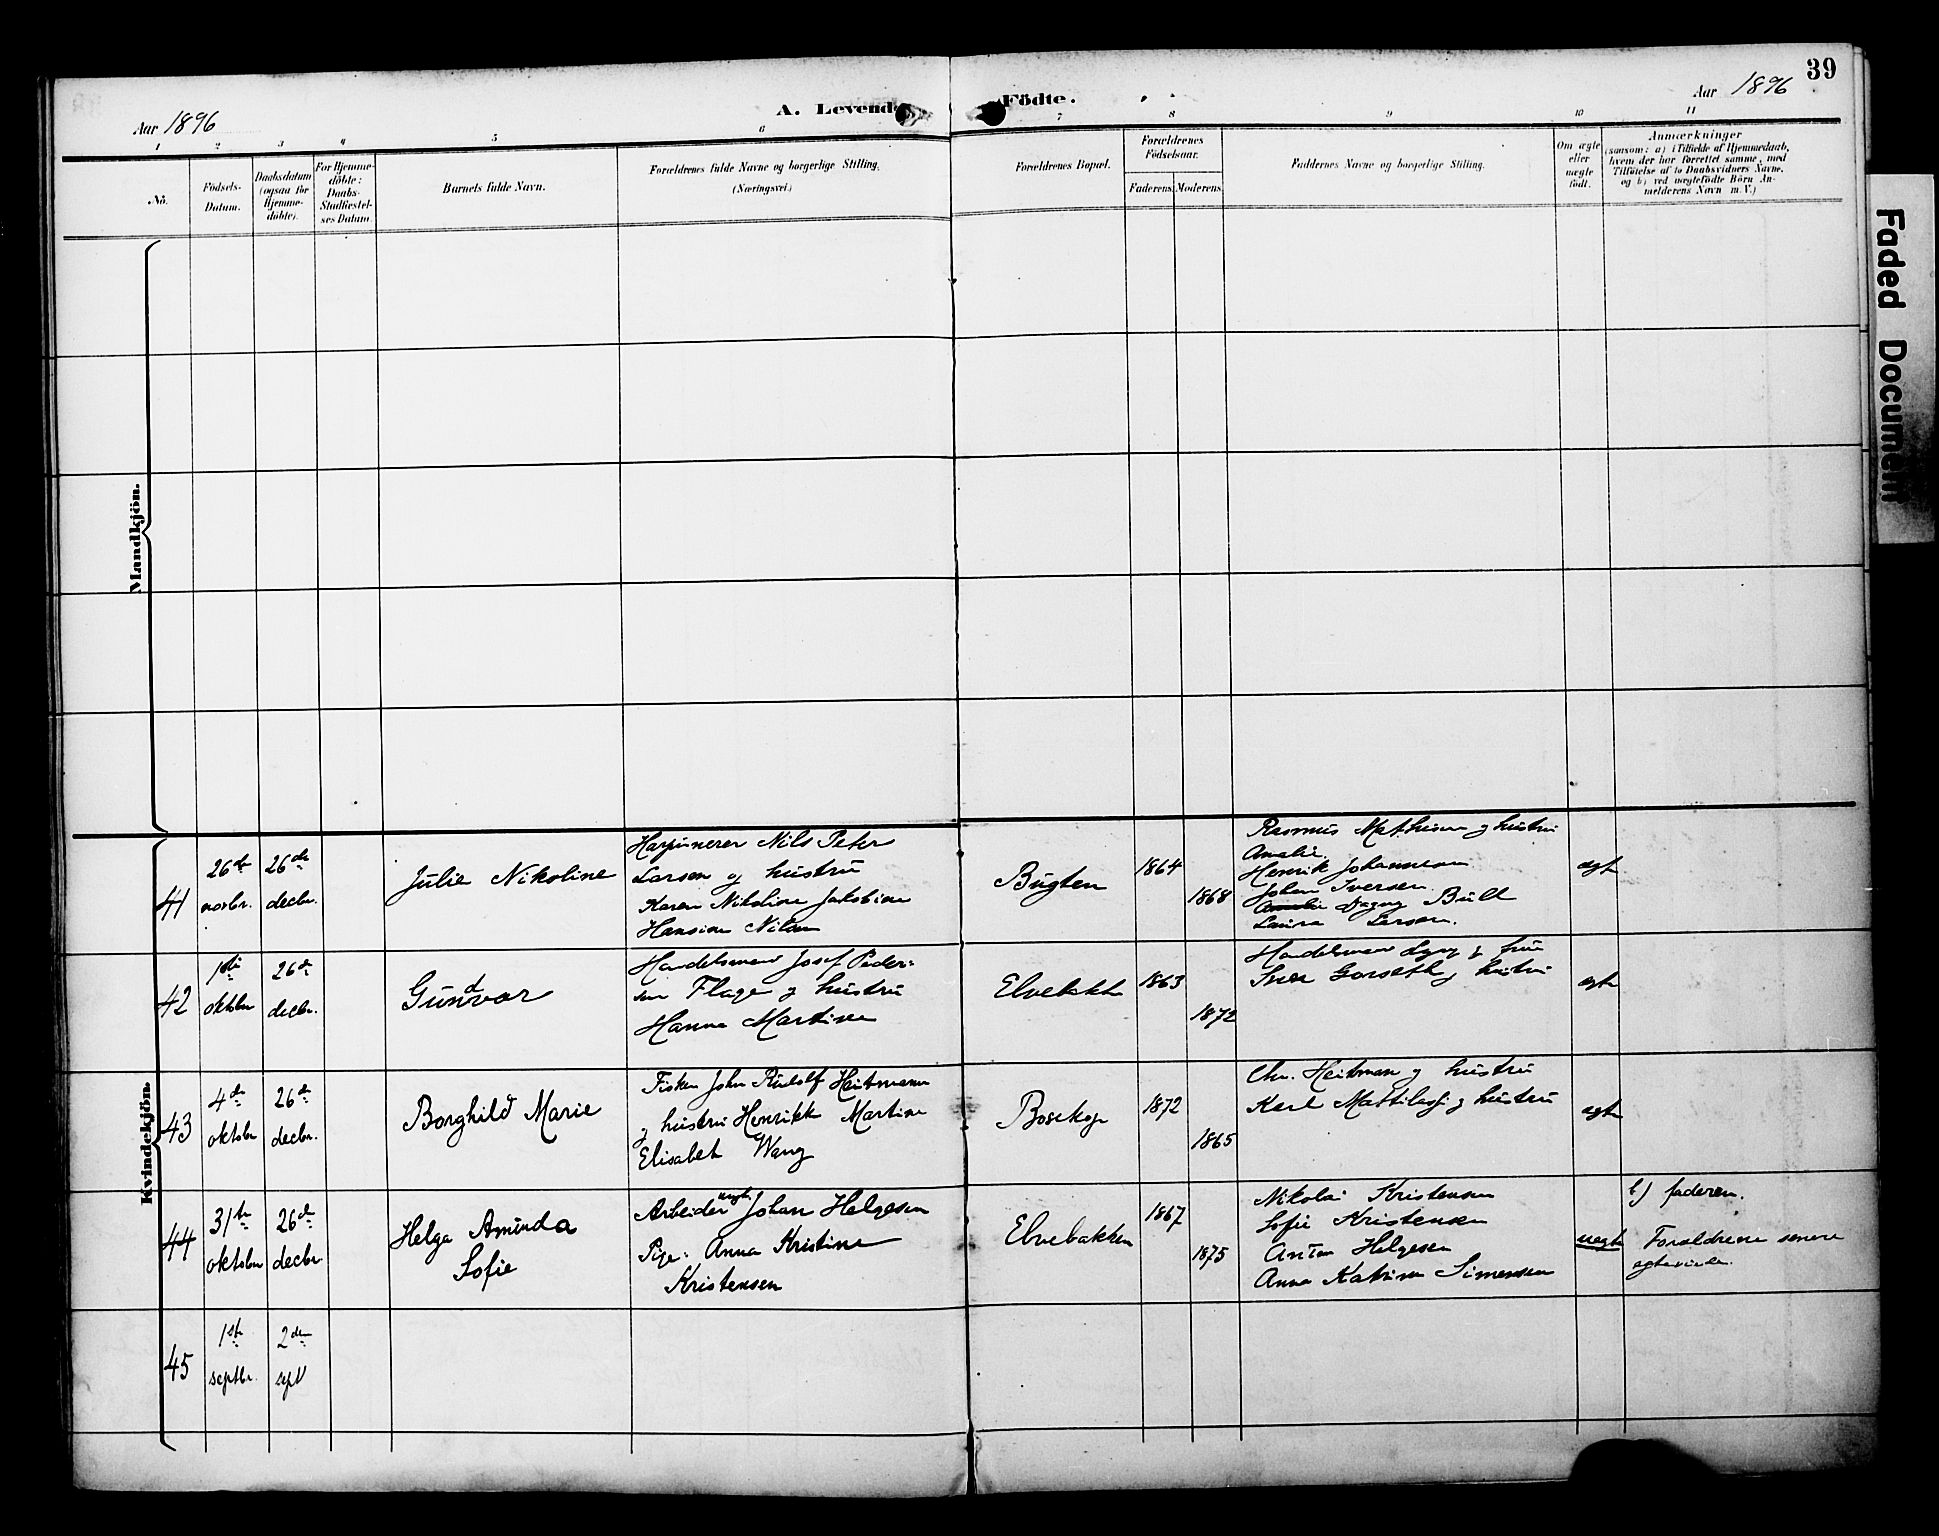 39
Aar 1896
A. Levende Födte.
Aar 1896
1 2 3 4 5 6 7 8 9 10 11
No.
Födsels-
Datum.
Daabsdatum
(ogsaa for
Hjemme-
döbte).
For Hjemme-
döbte:
Daabs-
Stadfæstel-
ses Datum.
Barnets fulde Navn.
Forældrenes fulde Navne og borgerlige Stilling.
(Næringsvei.)
Forældrenes Bopæl.
Forældrenes
Födselsaar.
Faderens. Moderens.
Faddernes Navne og borgerlige Stilling.
Om ægte
eller
uægte
födt.
Anmærkninger
(saasom: a) i Tilfælde af Hjemmedaab,
hvem der har forrettet samme, med
Tilföielse af to Daabsvidners Navne,
og b) ved uægtefödte Börn An-
melderens Navn m. V.)
Mandkjön.
Kvindekjön.
41
26de
novbr.
26de
decbr.
Julie Nikoline
Harpunerer Nils Peter
Larsen og hustru
Karen Nikoline Jakobine
Hansine Nilsen
Bugten
1864
1868
Rasmus Mathisen og hustru
Amalie.
Henrik Johannesen
Johan Iversen.
Amalie Dagny Bull
Laura Larsen.
ægte
42
1ste
oktober
26de
decbr.
Gundvor
Handelsmand Josef Peder-
sen Flage og hustru
Hanna Martine
Elvebakke
1863
1872
Handelsmand Lyng og frue
Gorseth og hustru
ægte
43
4de
oktober
26de
decbr.
Borghild Marie
Fisker John Rudolf Heitmann
og hustru Henrikke Martine
Elisabet Wang
Bosekop
1872
1865
Chr. Heitman og hustru
Karl Mattilasi og hustru
ægte
44
31te
oktober
26de
decbr
Helga Aminda
Sofie
Arbeider ungk. Johan Helgesen
Pige: Anna Kristine
Kristensen
Elvebakken
1867
1875
Nikolai Kristensen
Sofie Kristensen
Anton Helgesen
Anna Katrina Simensen
uægte
b) faderen.
Forældrene senere
ægteviede.
45
1ste
septbr.
2den
sept
Faded Document